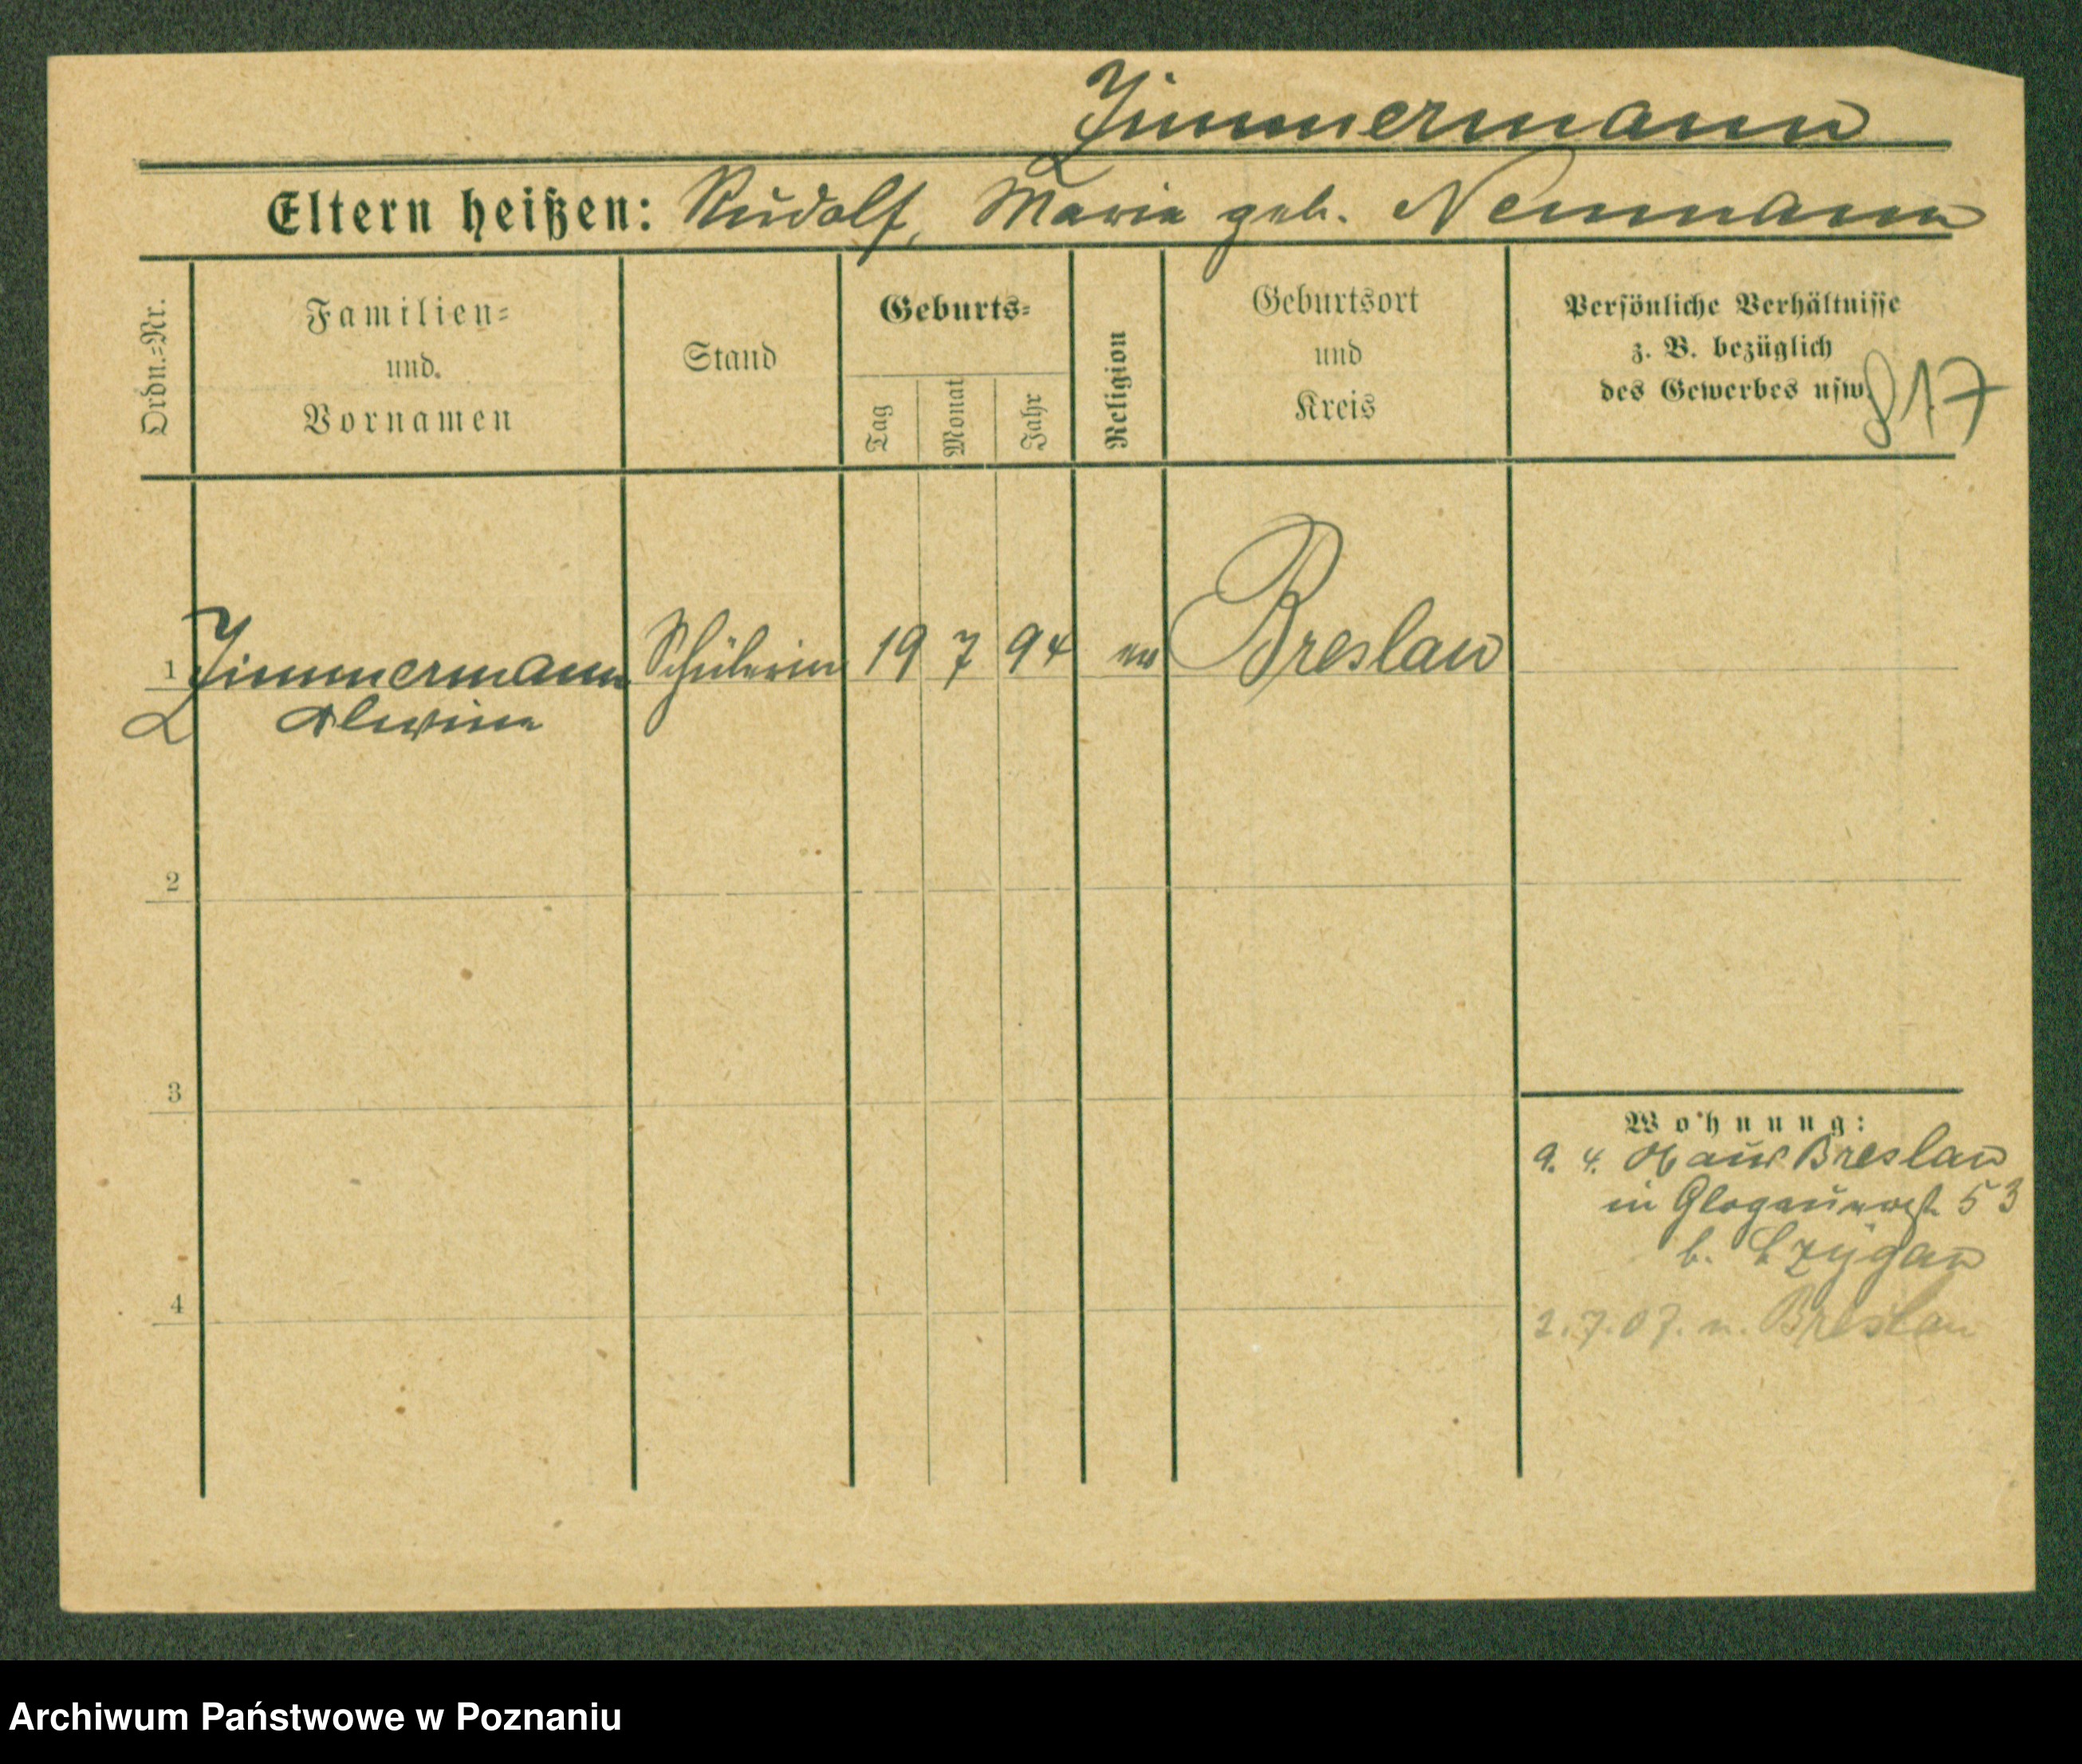 Zimmermann
Eltern heißen: Rudolf, Maria geb. Neumann
Ordn.=Nr.
Familien=
und
Vornamen
Stand
Geburts=
Tag
Monat
Jahr
Religion
Geburtsort
und
Kreis
Persönliche Verhältnisse
z. B. bezüglich
des Gewerbes usw.
817
1 Zimmermann Schülerin 19 7 94 ev Breslau
Alwine
2
3
4
Wohnung:
9. 4. 06 aus Breslau
in Glogauerstr. 53
b.
2. 7. 07. n. Breslau
Archiwum Państwowe w Poznaniu